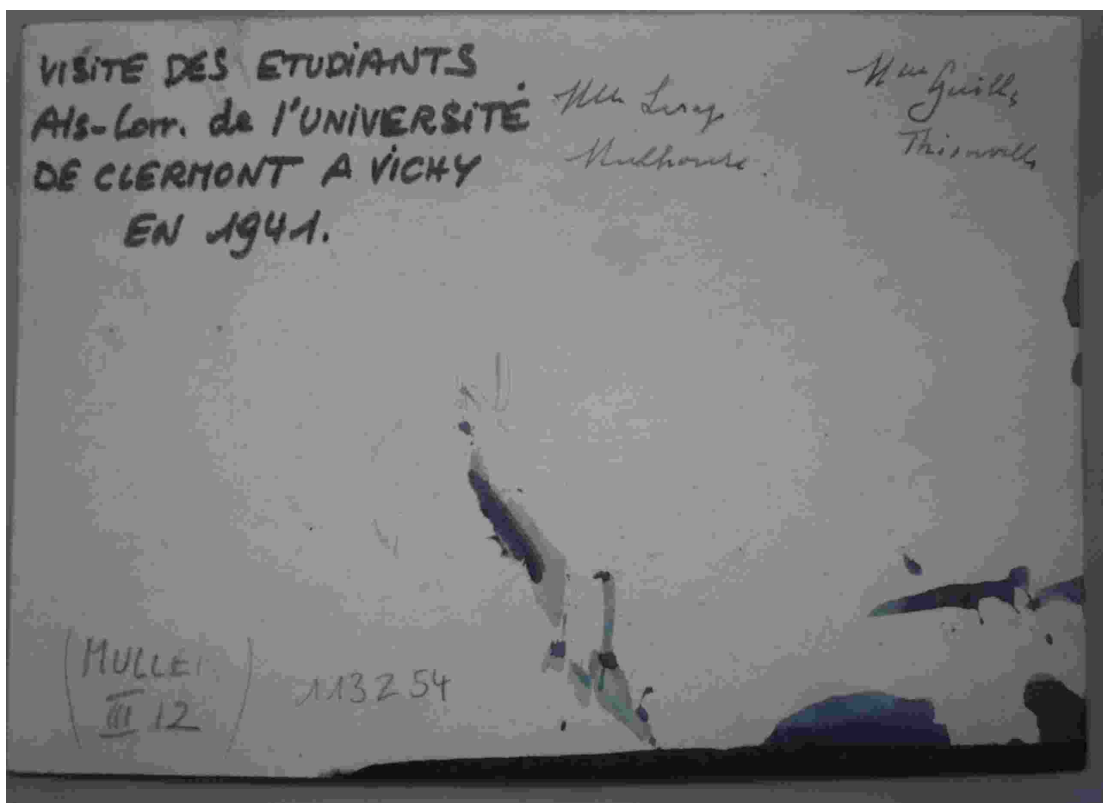 VISITE DES ETUDIANTS
Als-Lorr. de l'UNIVERSITÉ
DE CLERMONT A VICHY
EN 1941.
Mlle
Mulhouse.
Mme
Thionville
(MULLER
III 12)
113254